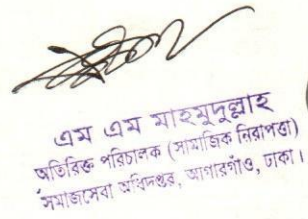 এম এম মাহমুদুল্লাহ
অতিরিক্ত পরিচালক (সামাজিক নিরাপত্তা)
সমাজসেবা অধিদপ্তর, আগারগাঁও, ঢাকা।